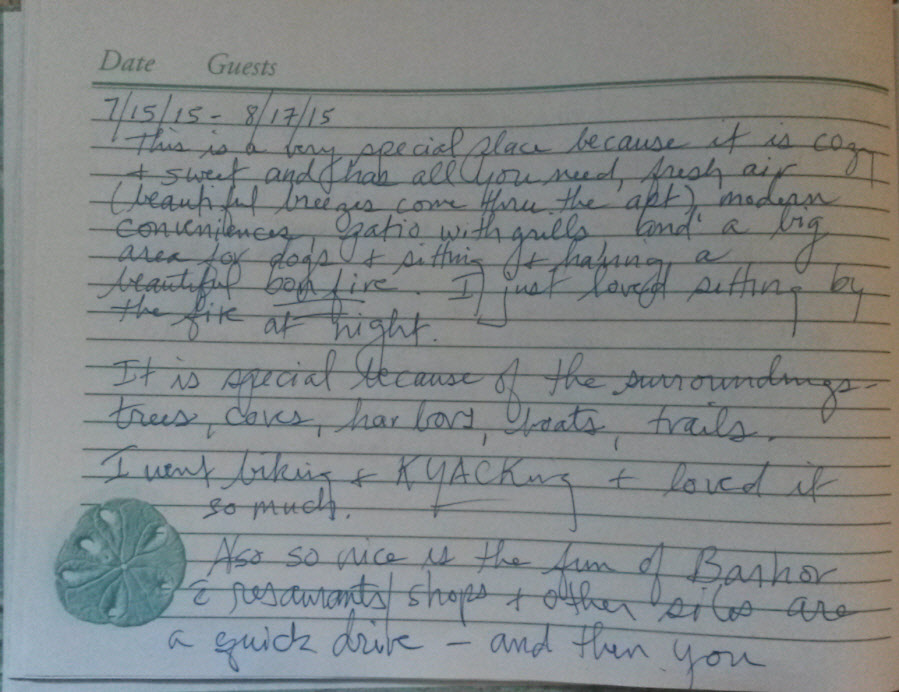 Date Guests
7/15/15 - 8/17/15
This is a very special place because it is cozy
+ sweet and has all you need, fresh air
(beautiful breezes come thru the apt) modern
conveniences, patio with grills and a big
area for dogs + sitting + having a
beautiful bon fire. I just loved sitting by
the fire at night.
It is special because of the surroundings -
trees, coves, harbors, boats, trails.
I went biking + KYACKing + loved it
so much.
Also so nice is the fun of Barhor
restaurants/shops + other are
a quick drive - and then you